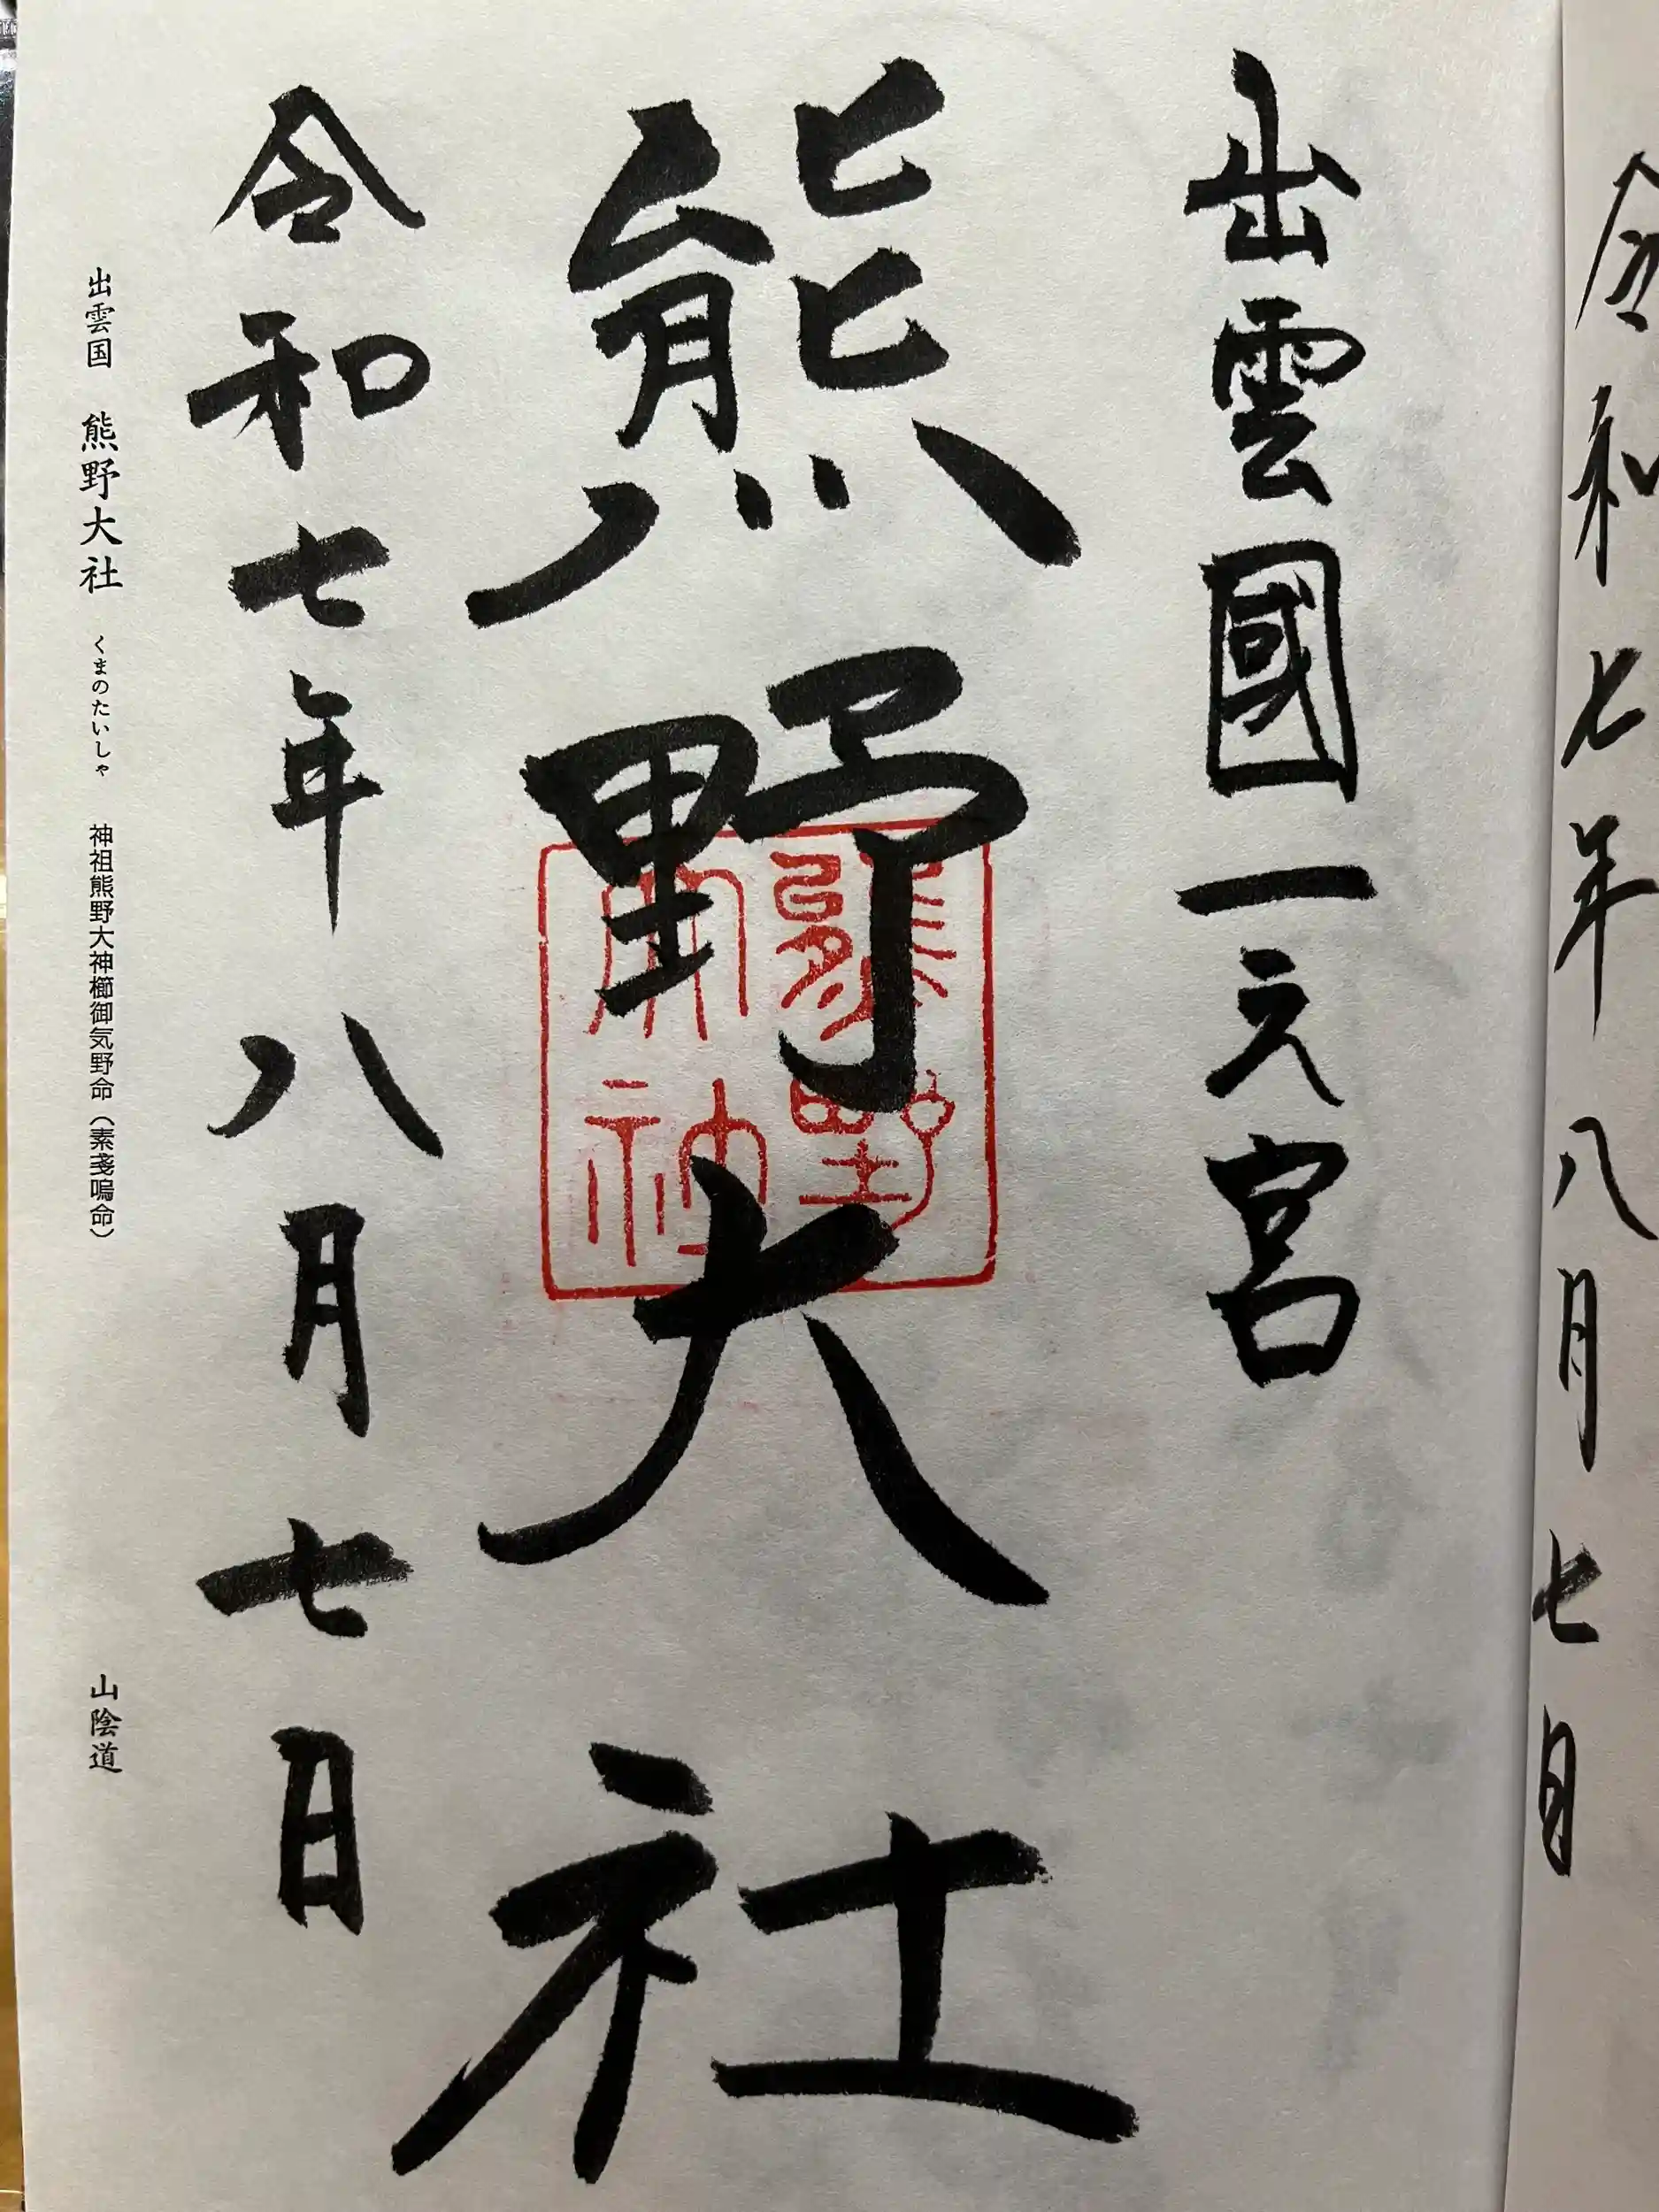 令和七年八月七日
出雲國一之宮
熊野大社
熊野大社
令和七年八月七日
出雲国 熊野大社 くまのたいしゃ 神祖熊野大神櫛御気野命（素戔嗚命） 山陰道